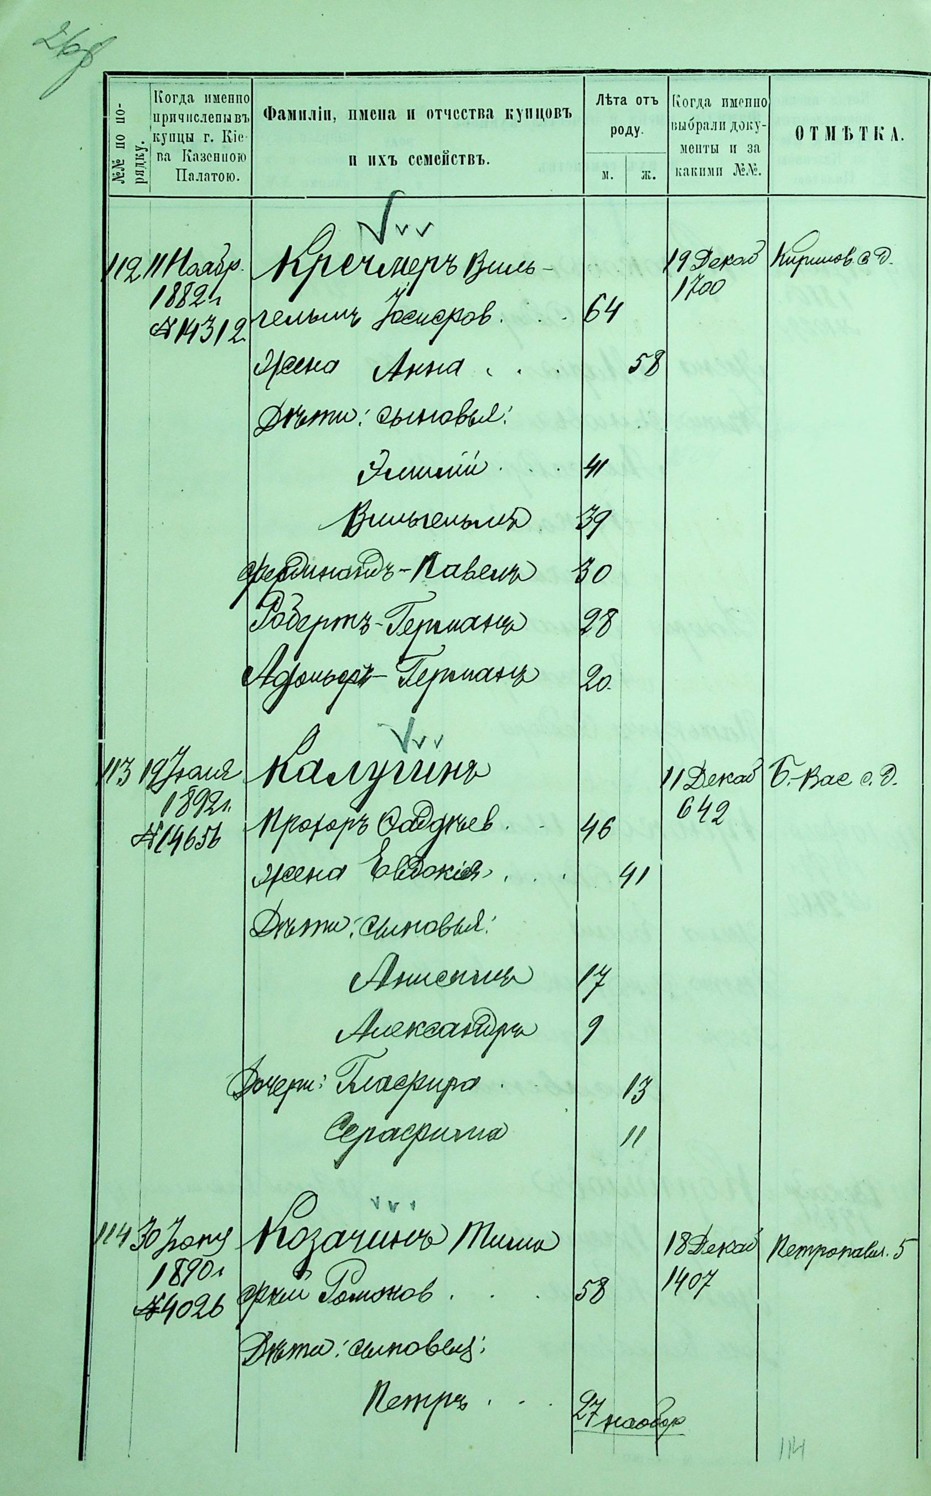 №№ по по-
рядку.
Когда именно
причислены въ
купцы г. Кіе-
ва Казенною
Палатою.
Фамиліи, имена и отчества купцовъ
и ихъ семействъ.
Лѣта отъ
роду.
м. ж.
Когда именно
выбрали доку-
менты и за
какими №№.
ОТМѢТКА.
112 11 Ноябр. Кречмеръ Виль- 19 Декаб Кирилов с. д.
1882 г. 1700
№14312 гельмъ Іосифов. 64
жена Анна 58
Дѣти: сыновья:
Эмилій 41
Вильгельмъ 39
Фердинандъ-Павелъ 30
Робертъ-Германъ 28
Адольфъ-Германъ 20
113 19 Іюля Калугинъ 11 Декаб Б.-Вас с. д.
1892 г. 642
№14656 Прохоръ Фаддѣев 46
жена Евдокія 41
Дѣти: сыновья:
Анисимъ 17
Александръ 9
Дочери: Глафира 13
Серафима 11
114 30 Козачинъ Тимо 18 Декаб Петропавл. 5
1890 г. 1407
№4026 фѣй Романов 58
Дѣти: сыновья:
Петръ 27
114